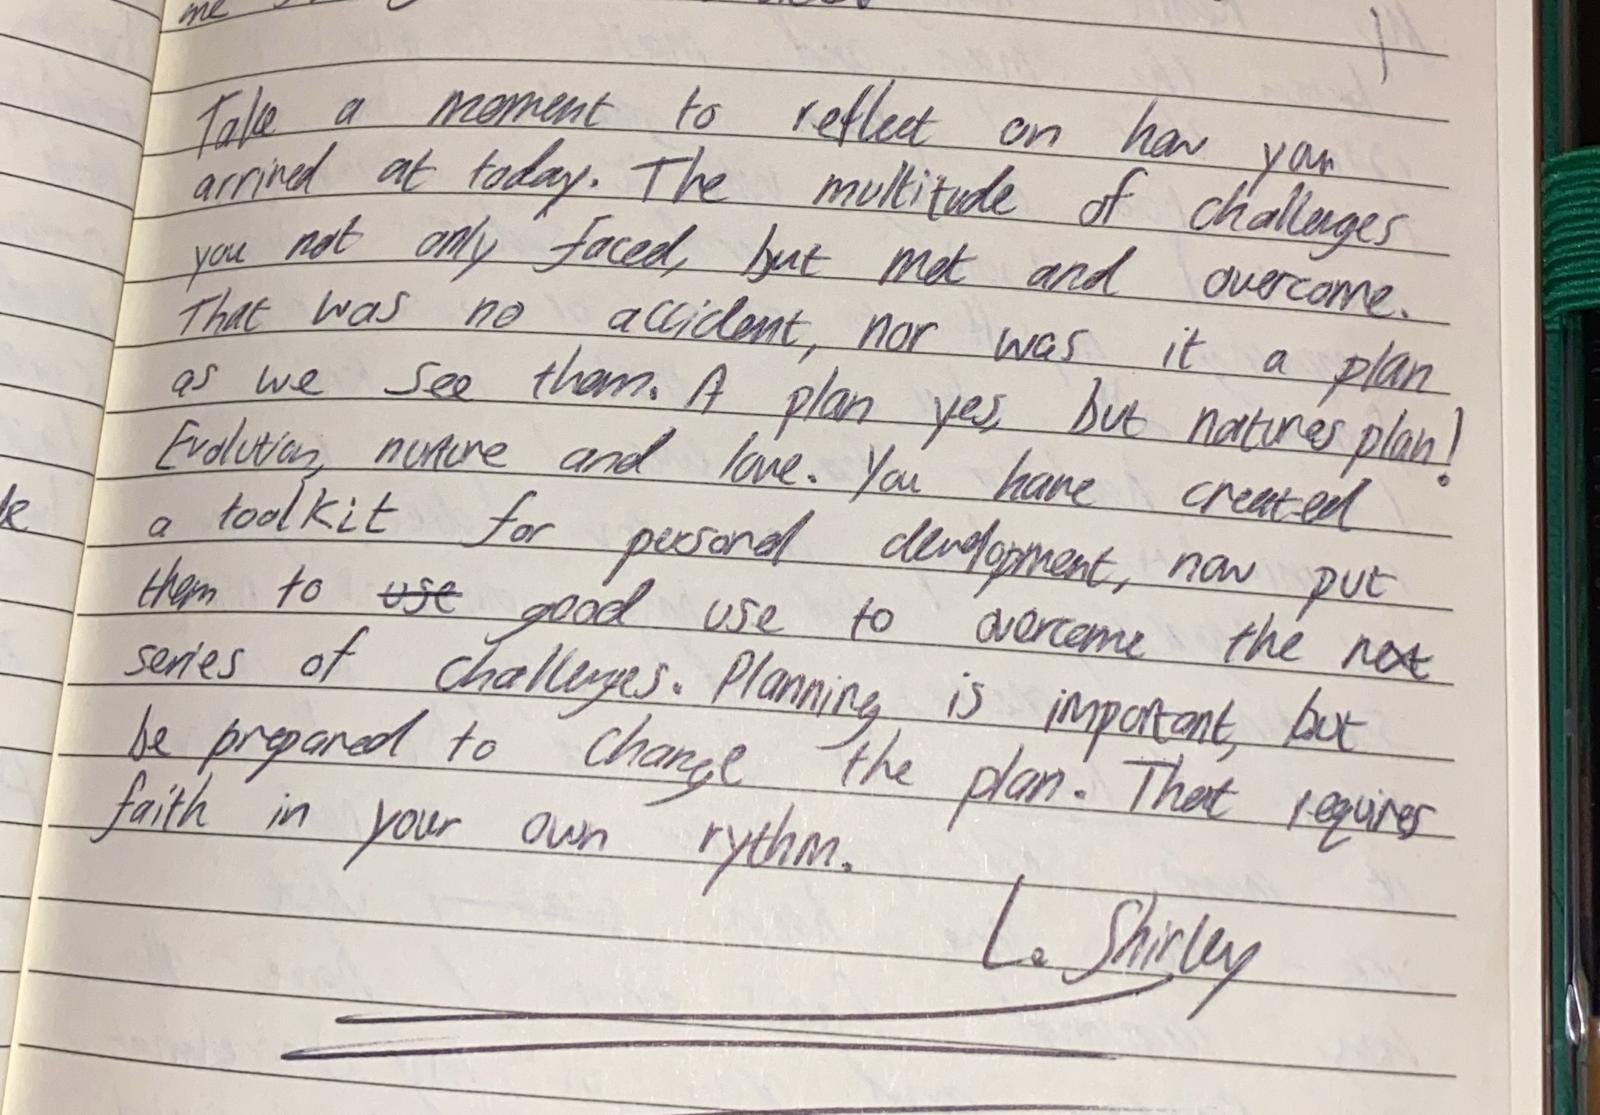 me
Take a moment to reflect on how you
arrived at today. The multitude of challenges
you not only faced, but met and overcome.
That was no accident, nor was it a plan
as we see them. A plan yes, but natures plan!
Evolution, nurture and love. You have created
a toolkit for personal development, now put
them to use good use to overcome the next
series of challenges. Planning is important, but
be prepared to change the plan. That requires
faith in your own rythm.
L. Shirley